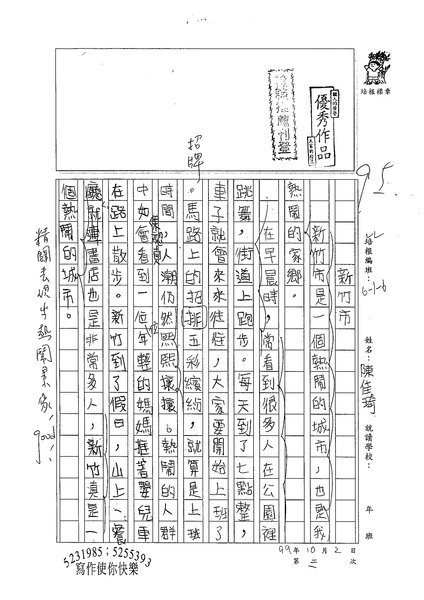 培根標章
優秀作品
95.
培根編班:6-1-6
姓名:陳佳琦
就讀學校:
年 班
99年10月2日
第二次
新竹市
新竹市是一個熱鬧的城市,也是我
熱鬧的家鄉。
在早晨時,常看到很多人在公園裡
跳舞,街道上跑步。每天到了七點整,
車子就會來來往往,大家要開始上班了
。馬路上的招排五彩繽紛,就算是上班
招牌
時間,人潮仍然熙熙攘攘。熱鬧的人群
中如會看到一位年輕的媽媽推著嬰兒車
在路上散步。新竹到了假日,山上、
就連書店也是非常多人,新竹真是一
個熱鬧的城市。
good!
5231985;5255393
寫作使你快樂